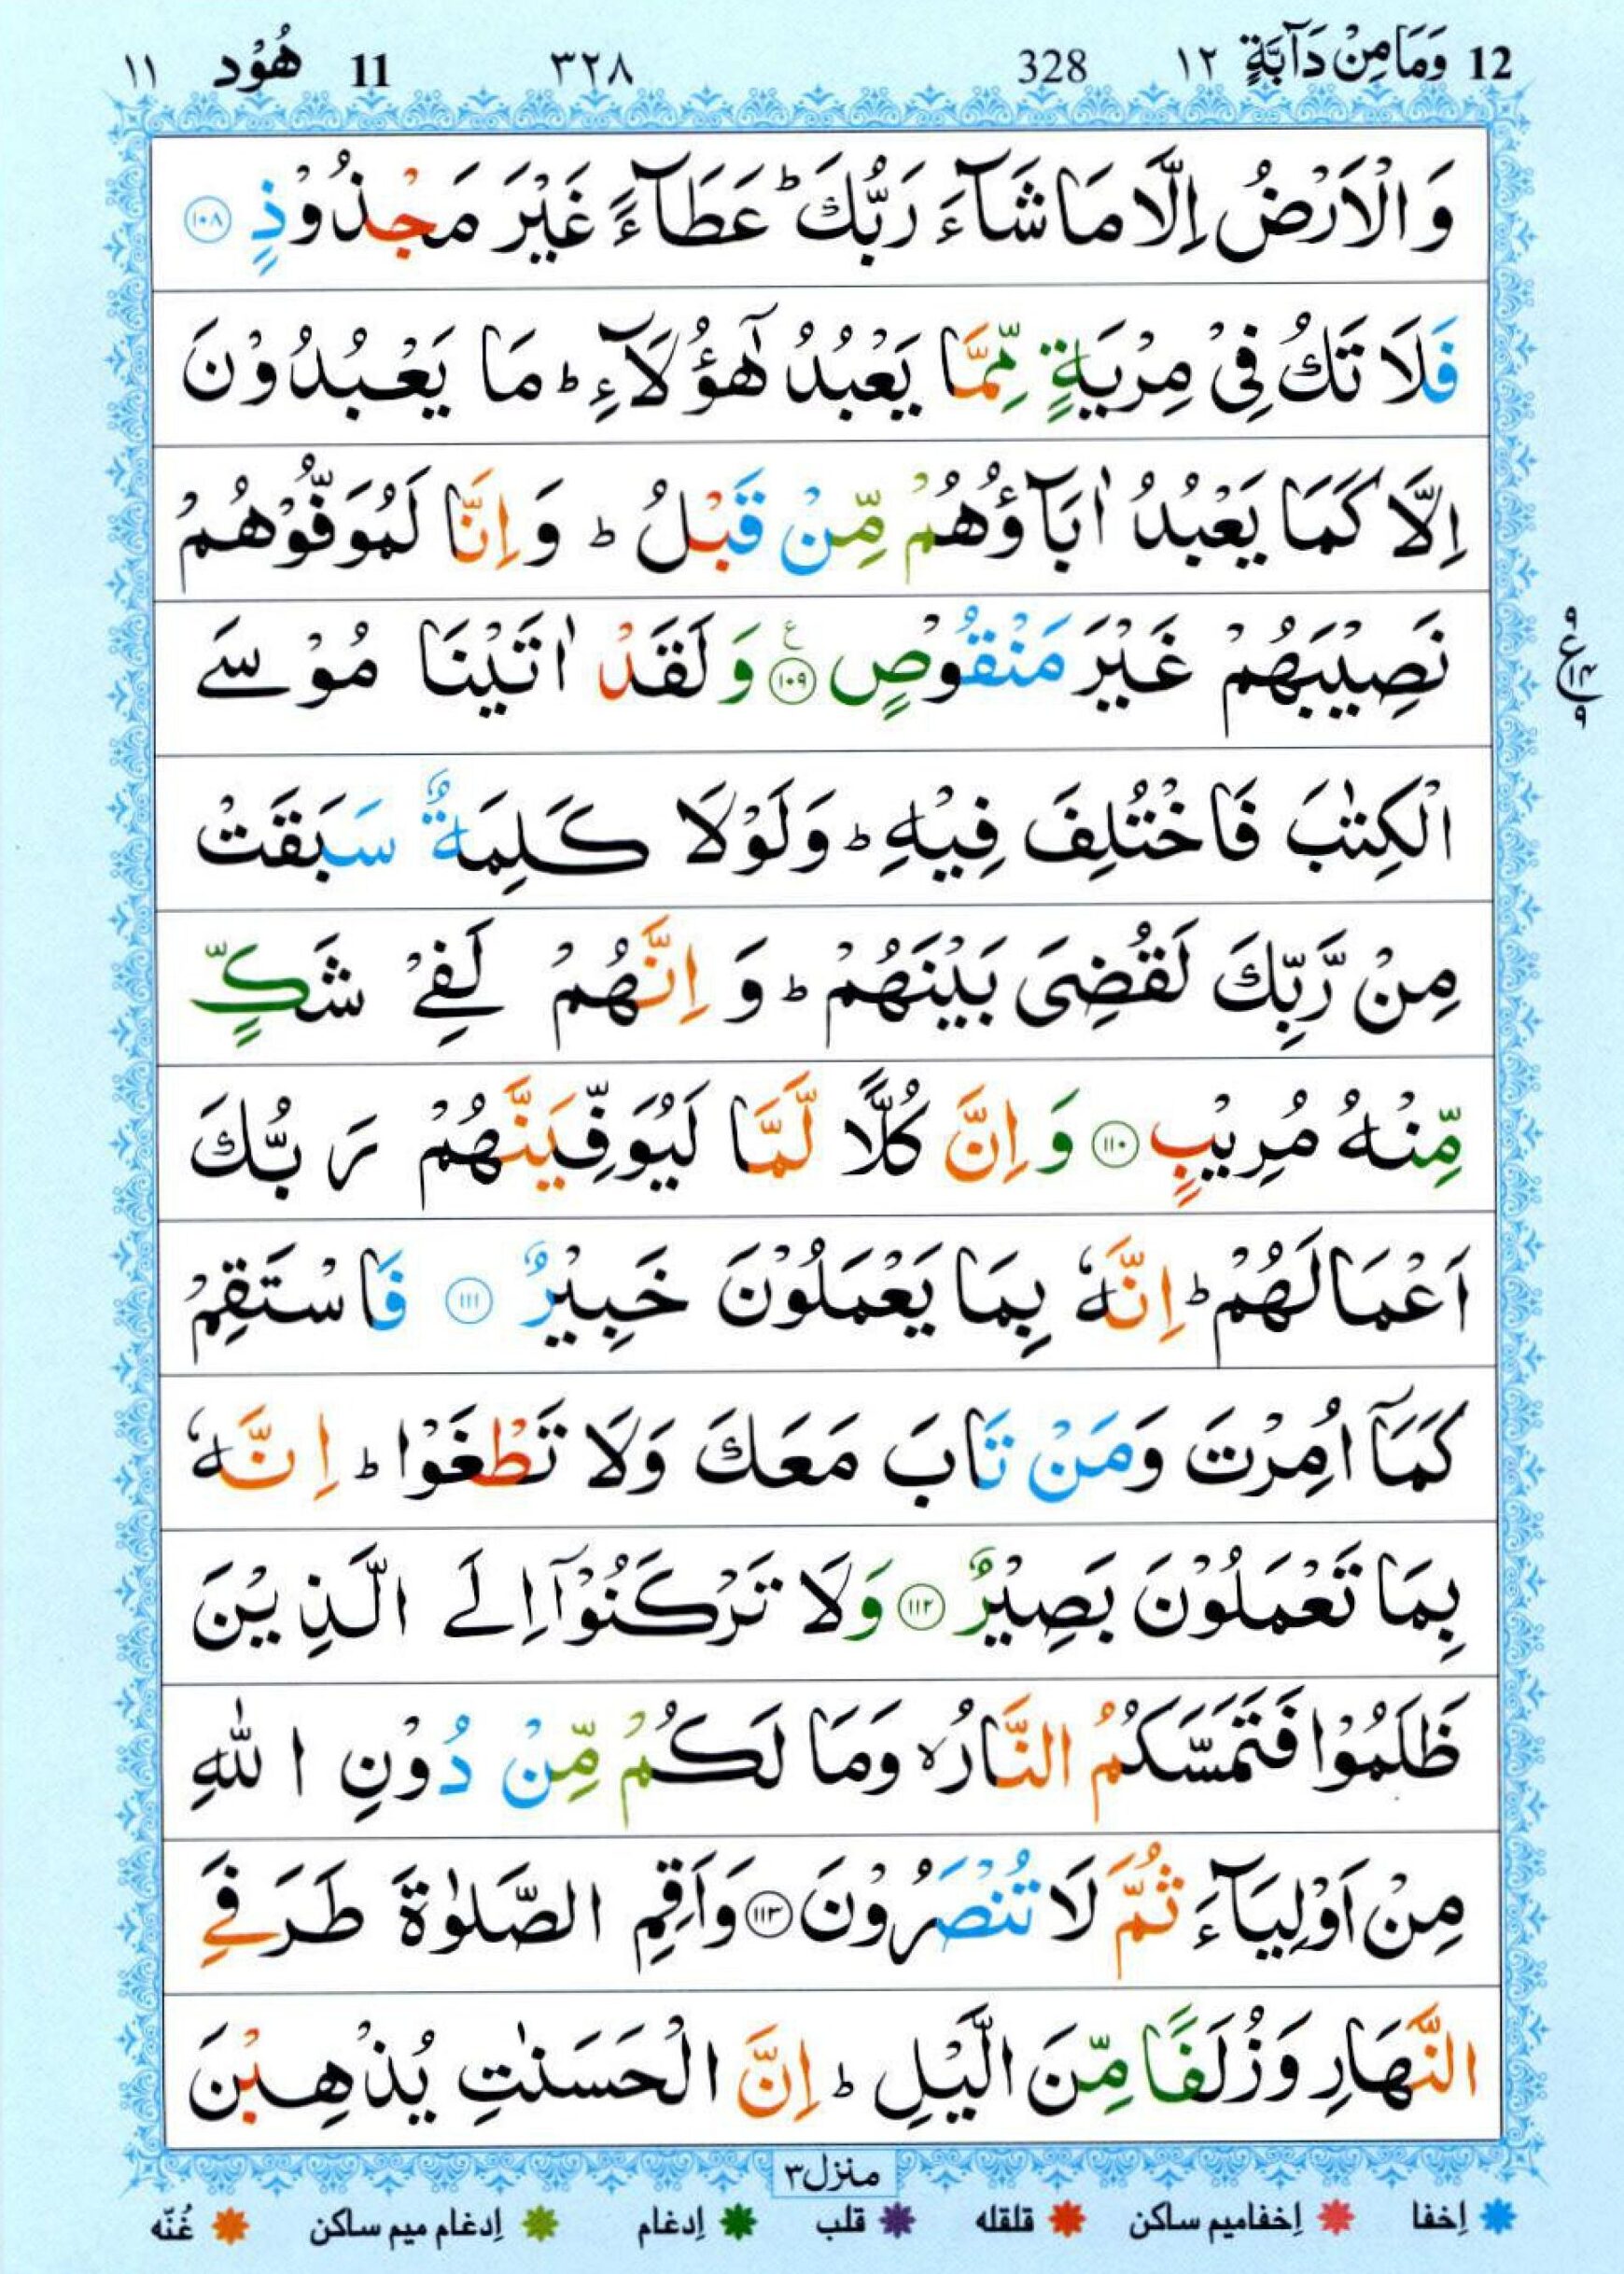 12 وَمَا مِنْ دَآبَّةٍ ١٢ 328 ٣٢٨ 11 هُوْد ١١
وَالْاَرْضُ اِلَّا مَا شَآءَ رَبُّكَ ؕ عَطَآءً غَيْرَ مَجْذُوْذٍ ١٠٨
فَلَا تَكُ فِىْ مِرْيَةٍ مِّمَّا يَعْبُدُ هٰٓؤُلَآءِ ؕ مَا يَعْبُدُوْنَ
اِلَّا كَمَا يَعْبُدُ اٰبَآؤُهُمْ مِّنْ قَبْلُ ؕ وَ اِنَّا لَمُوَفُّوْهُمْ
نَصِيْبَهُمْ غَيْرَ مَنْقُوْصٍ ١٠٩ وَ لَقَدْ اٰتَيْنَا مُوْسَے
ع ٩ ١٤ ٩
الْكِتٰبَ فَاخْتُلِفَ فِيْهِ ؕ وَلَوْلَا كَلِمَةٌ سَبَقَتْ
مِنْ رَّبِّكَ لَقُضِىَ بَيْنَهُمْ ؕ وَ اِنَّهُمْ لَفِےْ شَكٍّ
مِّنْهُ مُرِيْبٍ ١١٠ وَ اِنَّ كُلًّا لَّمَّا لَيُوَفِّيَنَّهُمْ رَبُّكَ
اَعْمَالَهُمْ ؕ اِنَّهٗ بِمَا يَعْمَلُوْنَ خَبِيْرٌ ١١١ فَاسْتَقِمْ
كَمَآ اُمِرْتَ وَمَنْ تَابَ مَعَكَ وَلَا تَطْغَوْا ؕ اِنَّهٗ
بِمَا تَعْمَلُوْنَ بَصِيْرٌ ١١٢ وَلَا تَرْكَنُوْۤا اِلَے الَّذِيْنَ
ظَلَمُوْا فَتَمَسَّكُمُ النَّارُ ۙ وَمَا لَكُمْ مِّنْ دُوْنِ اللّٰهِ
مِنْ اَوْلِيَآءَ ثُمَّ لَا تُنْصَرُوْنَ ١١٣ وَاَقِمِ الصَّلٰوةَ طَرَفَےِ
النَّهَارِ وَزُلَفًا مِّنَ الَّيْلِ ؕ اِنَّ الْحَسَنٰتِ يُذْهِبْنَ
منزل٣
اِخفا اِخفامیم ساکن قلقله قلب اِدغام اِدغام میم ساکن غُنّه